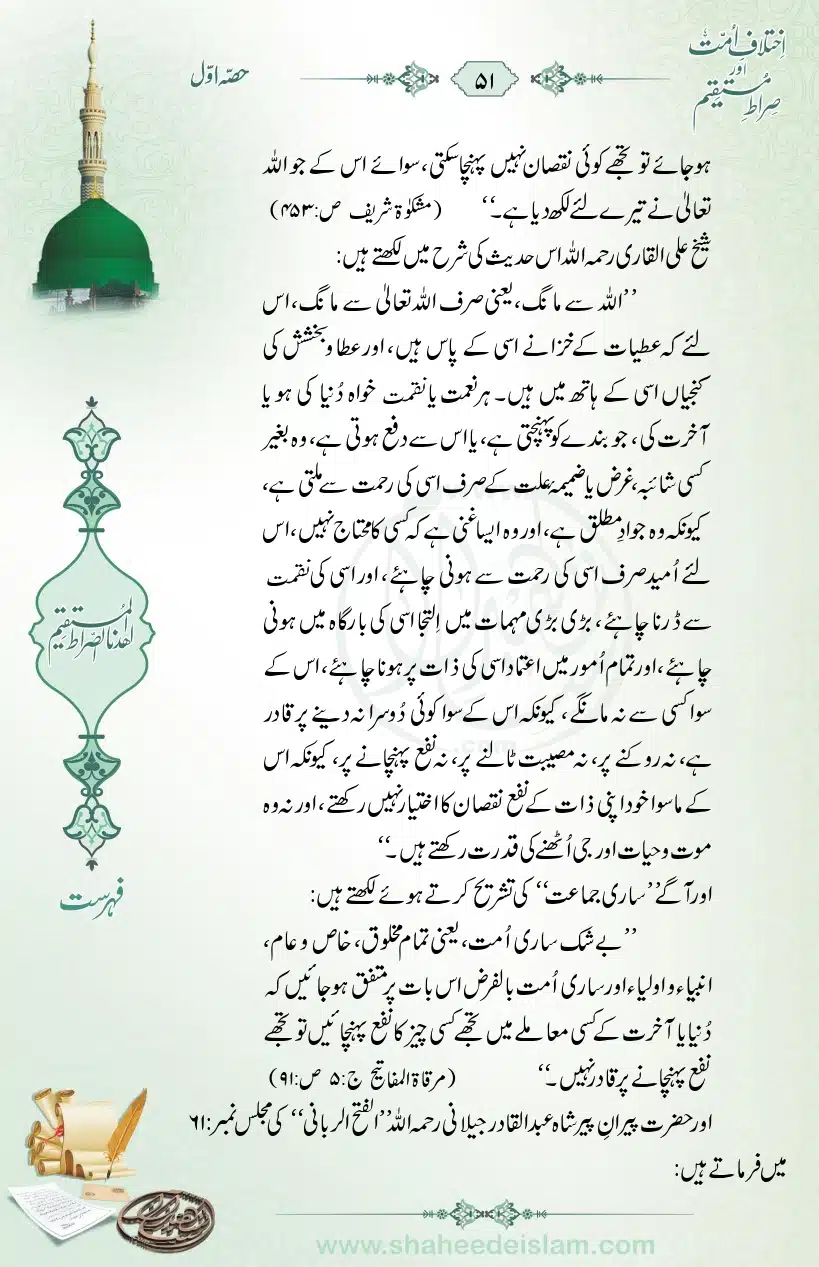 اِختلافِ اُمّت
اور
صراطِ مُستقیم
۵۱
حصّہ اوّل
ہوجائے تو تجھے کوئی نقصان نہیں پہنچا سکتی، سوائے اس کے جو اللہ
تعالیٰ نے تیرے لئے لکھ دیا ہے۔‘‘ (مشکوٰۃ شریف ص:۴۵۳)
شیخ علی القاری رحمہ اللہ اس حدیث کی شرح میں لکھتے ہیں:
’’اللہ سے مانگ، یعنی صرف اللہ تعالیٰ سے مانگ، اس
لئے کہ عطیات کے خزانے اسی کے پاس ہیں، اور عطا و بخشش کی
کنجیاں اسی کے ہاتھ میں ہیں۔ ہر نعمت یا نقمت خواہ دُنیا کی ہو یا
آخرت کی، جو بندے کو پہنچتی ہے، یا اس سے دفع ہوتی ہے، وہ بغیر
کسی شائبہ، غرض یا ضمیمۂ علت کے صرف اسی کی رحمت سے ملتی ہے،
کیونکہ وہ جوادِ مطلق ہے، اور وہ ایسا غنی ہے کہ کسی کا محتاج نہیں، اس
لئے اُمید صرف اسی کی رحمت سے ہونی چاہئے، اور اسی کی نقمت
سے ڈرنا چاہئے، بڑی بڑی مہمات میں اِلتجا اسی کی بارگاہ میں ہونی
چاہئے، اور تمام اُمور میں اعتماد اسی کی ذات پر ہونا چاہئے، اس کے
سوا کسی سے نہ مانگے، کیونکہ اس کے سوا کوئی دُوسرا نہ دینے پر قادر
ہے، نہ روکنے پر، نہ مصیبت ٹالنے پر، نہ نفع پہنچانے پر، کیونکہ اس
کے ماسوا خود اپنی ذات کے نفع نقصان کا اختیار نہیں رکھتے، اور نہ وہ
موت و حیات اور جی اُٹھنے کی قدرت رکھتے ہیں۔‘‘
اور آگے ’’ساری جماعت‘‘ کی تشریح کرتے ہوئے لکھتے ہیں:
’’بے شک ساری اُمت، یعنی تمام مخلوق، خاص و عام،
انبیاء و اولیاء اور ساری اُمت بالفرض اس بات پر متفق ہوجائیں کہ
دُنیا یا آخرت کے کسی معاملے میں تجھے کسی چیز کا نفع پہنچائیں تو تجھے
نفع پہنچانے پر قادر نہیں۔‘‘ (مرقاۃ المفاتیح ج:۵ ص:۹۱)
اور حضرت پیرانِ پیر شاہ عبدالقادر جیلانی رحمہ اللہ ’’الفتح الربانی‘‘ کی مجلس نمبر:۶۱
میں فرماتے ہیں:
اھدنا الصراط المستقیم
فہرست
www.shaheedeislam.com